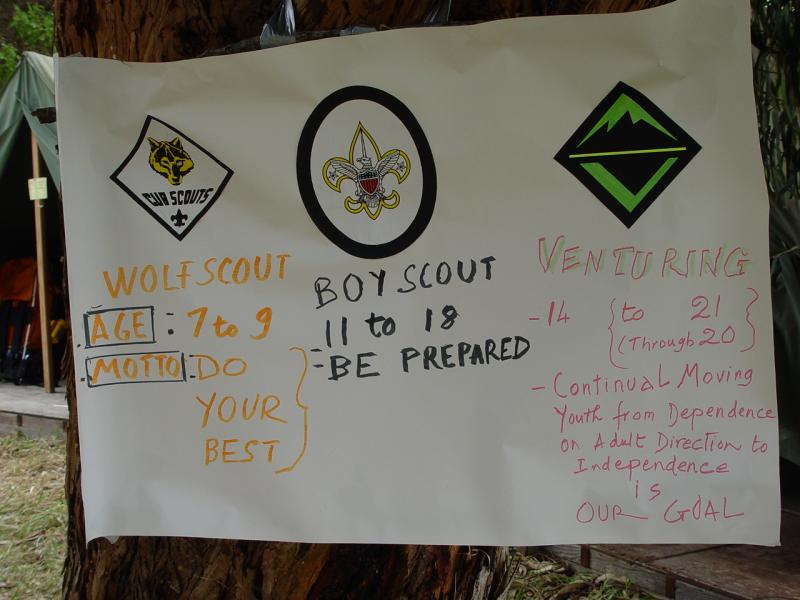 CUB SCOUTS
WOLF SCOUT
AGE : 7 to 9
MOTTO: DO
YOUR
BEST
BOY SCOUT
11 to 18
- BE PREPARED
VENTURING
- 14 { to 21
(Through 20 }
- Continual Moving
Youth from Dependence
on Adult Direction to
Independence
is
OUR GOAL